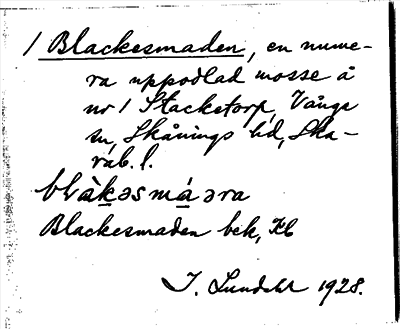 1 Blackesmaden, en nume-
ra uppodlad mosse å
nr 1 Stacketorp, Vångs
sn, Skånings hd, Ska-
rab. l.
blàkəsmáəra
Blackesmaden bek, Kb
J. Lundahl 1928.